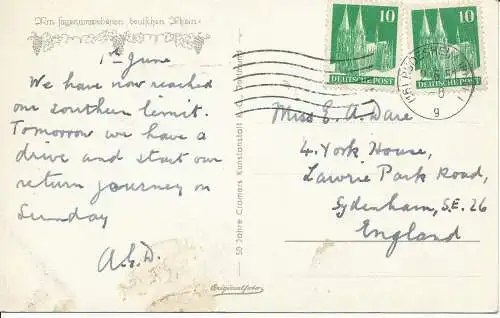 Am sagenumwobenen deutschen Rhein
1st June
We have now reached
our southern limit.
Tomorrow we have a
drive and start our
return journey on
Sunday
A.E.D.
50 Jahre Cramers Kunstanstalt A.G., Dortmund
Originalfoto
10
DEUTSCHE POST
10
DEUTSCHE POST
Miss E. A. Dare
4. York House,
Lawrie Park Road,
Sydenham, S.E. 26
England